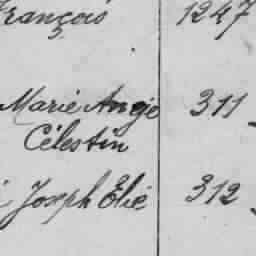 François 1247
Marie Ange 311
Célestin
Joseph Elie 312